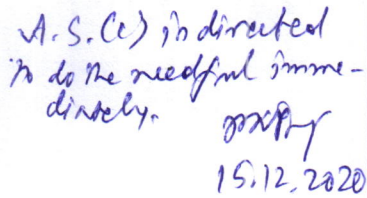 A.S.(L) is directed
to do the needful imme-
diately.
15.12.2020